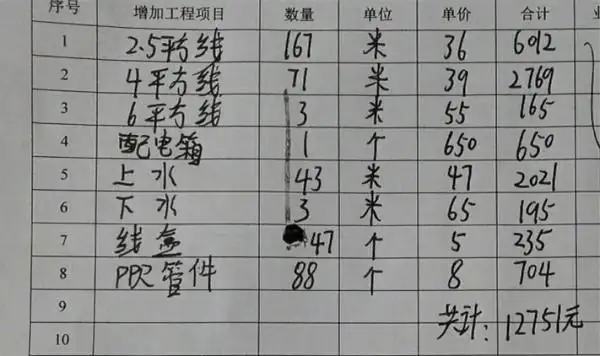 序号 增加工程项目 数量 单位 单价 合计
1 2.5平方线 167 米 36 6012
2 4平方线 71 米 39 2769
3 6平方线 3 米 55 165
4 配电箱 1 个 650 650
5 上水 43 米 47 2021
6 下水 3 米 65 195
7 线盒 47 个 5 235
8 PPR管件 88 个 8 704
9 共计：12751元
10